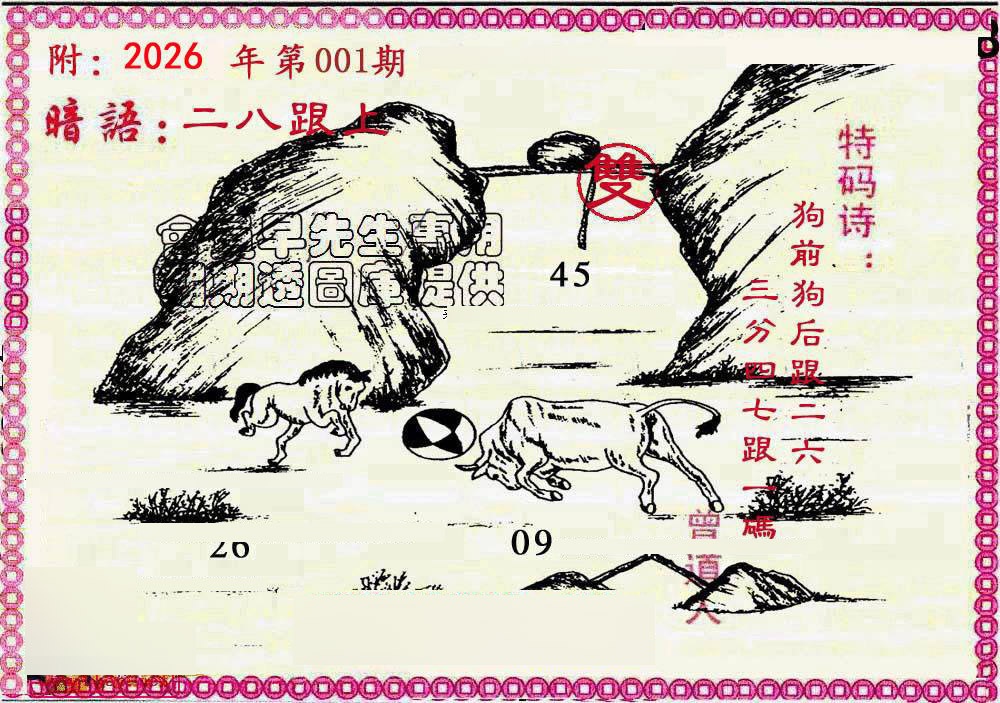 附：2026 年第001期
暗語：二八跟上
雙
特码诗：
狗前狗后跟二六
三分四七跟一碼
曾道人
早先生專用
期透圖庫提供
45
26
09